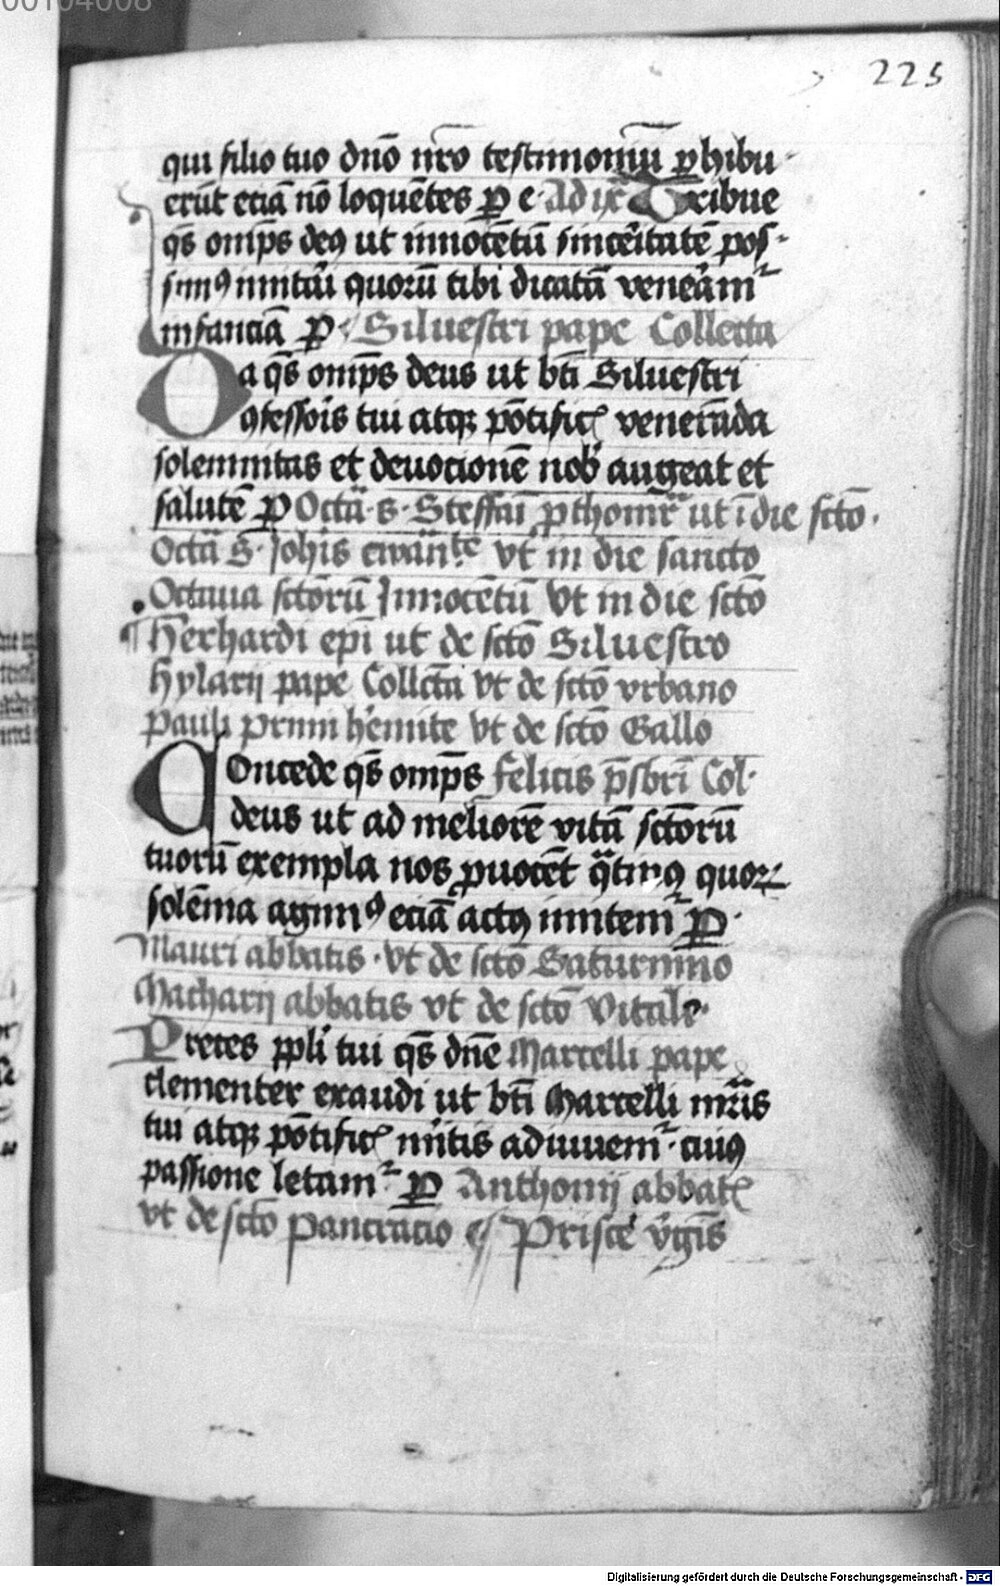 00104008
225
qui filio tuo dnō nr̄o testimoniū ꝑhibu-
erūt eciā nō loquētes ꝑ e Ad ix Tribue
qs̄ omp̄s deꝯ ut innocētū sinceritatē pos-
simꝯ imitari quorū tibi dicatā veneram̄
infanciā P Siluestri pape Collecta
Da qs̄ omp̄s deus ut bt̄i Siluestri
ꝯfessoris tui atqꝫ pōtific̄ veneranda
solemnitas et deuocionē nob̄ augeat et
salutē P Octā s. Steffani ꝓthomr̄ ut ī die sctō.
Octā S. Joh̄is ewāⁿte vt in die sancto
Octaua sctōrū Innocētū vt in die sctō
Herhardi ep̄i ut de sctō Siluestro
Hylarij pape Collecta vt de sctō vrbano
Pauli primi h̓emite vt de sctō Gallo
Concede qs̄ omp̄s Felicis p̄sbr̄i Col.
deus ut ad meliorē vitā sctōrū
tuorū exempla nos ꝓuocēt qᵃtinꝯ quoꝝ
solēnia agimꝯ eciā actꝯ imitem̄ P.
Mauri abbatis. vt de sctō Saturnino
Macharij abbatis vt de sctō Vitale.
Preces ppl̄i tui qs̄ dn̄e Marcelli pape
clementer exaudi ut bt̄i Marcelli mr̄is
tui atqꝫ pōtific̄ mr̄itis adiuuem̄. cuiꝯ
passione letam̄ P Anthonij abbat̄
vt de sctō pancracio ¶ Prisce v̓gīs
Digitalisierung gefördert durch die Deutsche Forschungsgemeinschaft - DFG